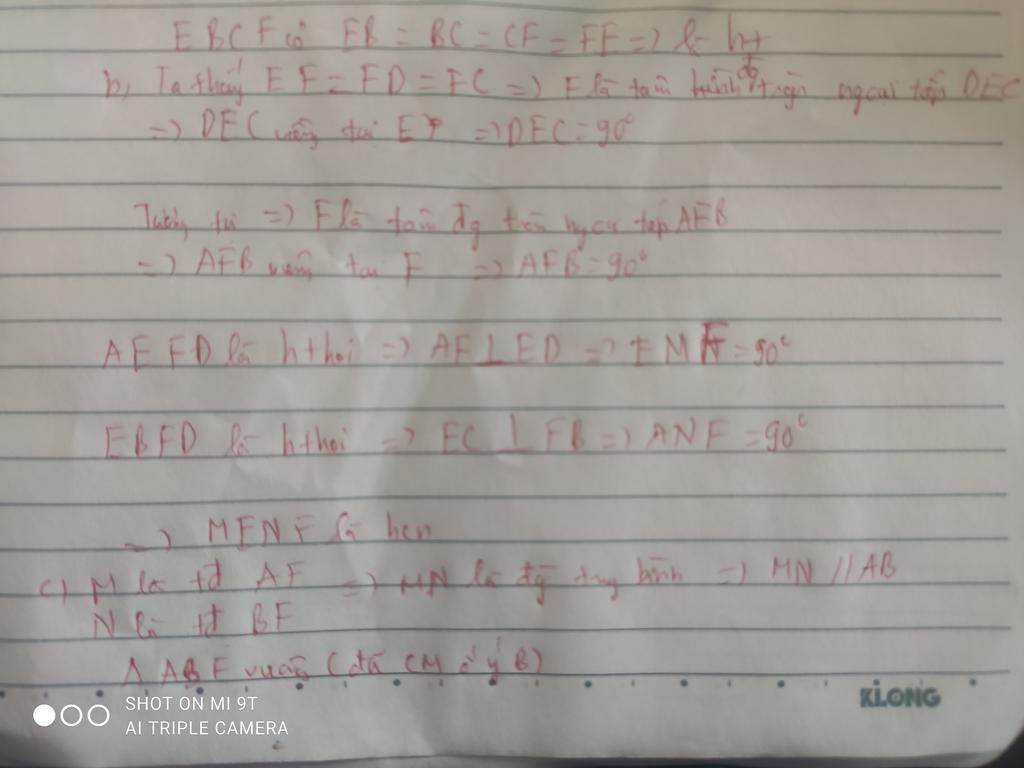 EBCF có EB = BC = CF = FE => là ht
b, Ta thấy EF = FD = FC => F là tâm đg tròn ngoại tiếp DEC
=> DEC vuông tại E => DEC = 90°
Tương tự => E là tâm đg tròn ngoại tiếp AFB
=> AFB vuông tại F => AFB = 90°
AEFD là hthoi => AF ⊥ ED => EMF = 90°
EBFD là hthoi => EC ⊥ FB => ANF = 90°
=> MENF là hcn
c) M là tđ AF => MN là đg trung bình => MN // AB
N là tđ BF
Δ ABF vuông (đã CM ở ý B)
KLONG
SHOT ON MI 9T
AI TRIPLE CAMERA